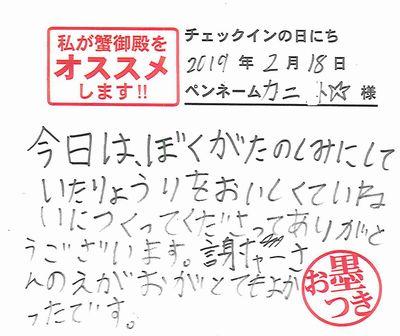 私が蟹御殿を
オススメ
します!!
チェックインの日にち
2019年2月18日
ペンネームカニ ト☆様
今日は、ぼくがたのしみにして
いたりょうりをおいしくていね
いにつくってくださってありがと
うございます。謝さ
んのえがおがとてもよか
ったです。
お墨つき